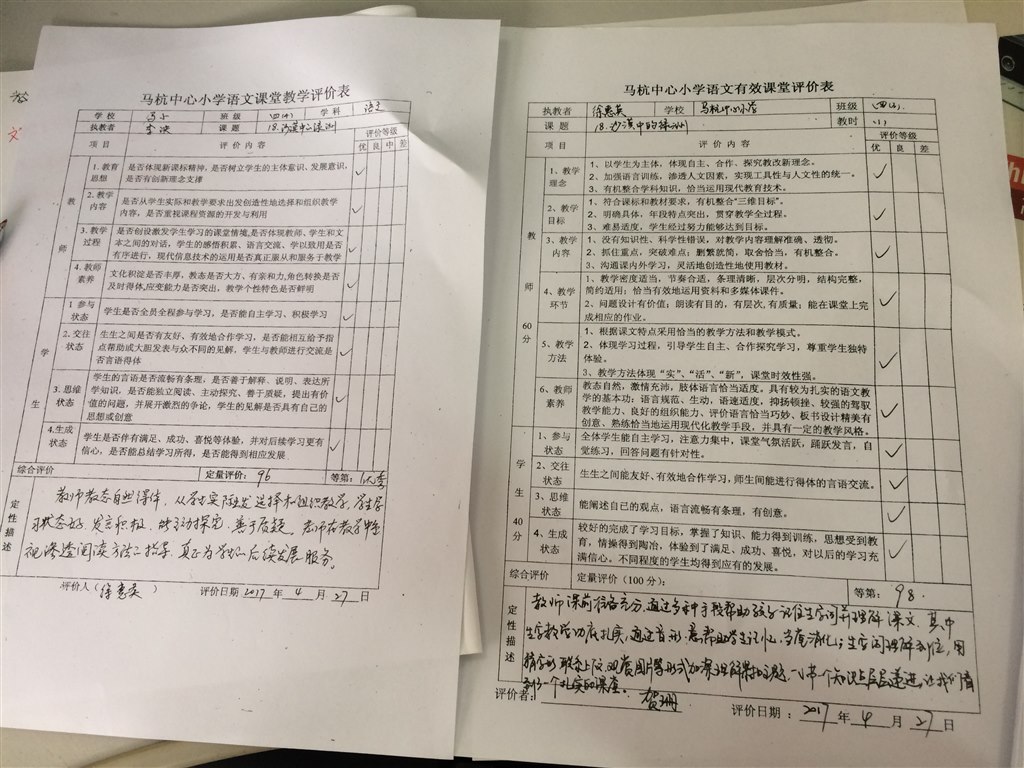 马杭中心小学语文课堂教学评价表
学校 马小 班级 四(4) 学科 语文
执教者 课题 18.沙漠中的绿洲 评价等级
项目 评价内容 优 良 中 差
教师
1.教育思想 是否体现新课标精神,是否树立学生的主体意识、发展意识,
是否有创新理念支撑
2.教学内容 是否从学生实际和教学要求出发创造性地选择和组织教学
内容,是否重视课程资源的开发与利用
3.教学过程 是否创设激发学生学习的课堂情境,是否体现教师、学生和文
本之间的对话,学生的感悟积累、语言交流、学以致用是否
有序进行,现代信息技术的运用是否真正服从和服务于教学
4.教师素养 文化积淀是否丰厚,教态是否大方、有亲和力,角色转换是否
及时得体,应变能力是否突出,教学个性特色是否鲜明
学生
1参与状态 学生是否全员全程参与学习,是否能自主学习、积极学习
2.交往状态 生生之间是否有友好、有效地合作学习,是否能相互给予指
点帮助或大胆发表与众不同的见解,学生与教师进行交流是
否言语得体
3.思维状态 学生的言语是否流畅有条理,是否善于解释、说明、表达所
学知识,是否能独立阅读、主动探究、善于质疑,提出有价
值的问题,并展开激烈的争论,学生的见解是否具有自己的
思想或创意
4.生成状态 学生是否伴有满足、成功、喜悦等体验,并对后续学习更有
信心,是否能总结学习所得,是否能得到相应发展
综合评价 定量评价:96 等第:优秀
定性描述
教师教态自然得体,从学生实际出发选择和组织教学,学生学
习状态好,发言积极,能主动探究,善于质疑。老师在教学中重
视渗透阅读方法的指导,真正为学生的后续发展服务。
评价人(徐惠英) 评价日期 2017 年 4 月 27 日
马杭中心小学语文有效课堂评价表
执教者 徐惠英 学校 马杭中心小学 班级
课题 18.沙漠中的绿洲 教时 (1)
项目 评价内容 评价等级
优 良 差
教师60分
1、教学理念
1、以学生为主体,体现自主、合作、探究教改新理念。
2、加强语言训练,渗透人文因素,实现工具性与人文性的统一。
3、有机整合学科知识,恰当运用现代教育技术。
2、教学目标
1、符合课标和教材要求,有机整合“三维目标”。
2、明确具体,年段特点突出,贯穿教学全过程。
3、难易适度,学生经过努力能够达到目标。
3、教学内容
1、没有知识性、科学性错误,对教学内容理解准确、透彻。
2、抓住重点,突破难点;删繁就简,取舍恰当,有机整合。
3、沟通课内外学习,灵活地创造性地使用教材。
4、教学环节
1、教学密度适当,节奏合适,条理清晰,层次分明,结构完整,
简约适用;恰当有效地运用资料和多媒体课件。
2、问题设计有价值;朗读有目的,有层次,有质量;能在课堂上完
成相应的作业。
5、教学方法
1、根据课文特点采用恰当的教学方法和教学模式。
2、体现学习过程,引导学生自主、合作探究学习,尊重学生独特
体验。
3、教学方法体现“实”、“活”、“新”,课堂时效性强。
6、教师素养
教态自然,激情充沛,肢体语言恰当适度。具有较为扎实的语文教
学的基本功:语言规范、生动,语速适度,抑扬顿挫、较强的驾驭
教学能力、良好的组织能力、评价语言恰当巧妙、板书设计精美有
创意、熟练恰当地运用现代化教学手段,并具有一定的教学风格。
学生40分
1、参与状态 全体学生能自主学习,注意力集中,课堂气氛活跃,踊跃发言,自
觉练习,回答问题有针对性。
2、交往状态 生生之间能友好、有效地合作学习,师生间能进行得体的言语交流。
3、思维状态 能阐述自己的观点,语言流畅有条理,有创意。
4、生成状态 较好的完成了学习目标,掌握了知识、能力得到训练,思想受到教
育,情操得到陶冶,体验到了满足、成功、喜悦,对以后的学习充
满信心。不同程度的学生均得到应有的发展。
综合评价 定量评价(100分): 等第: 98.
定性描述
教师课前准备充分,通过多种手段帮助孩子记住生字词并理解课文。其中
生字教学功底扎实,通过音形意帮助学生记忆,当堂消化;生字词理解到位,用
联系上下文,观察图片等形式加深理解
到了一个扎实的课堂。
评价者:贺珊
评价日期:2017 年 4 月 27 日